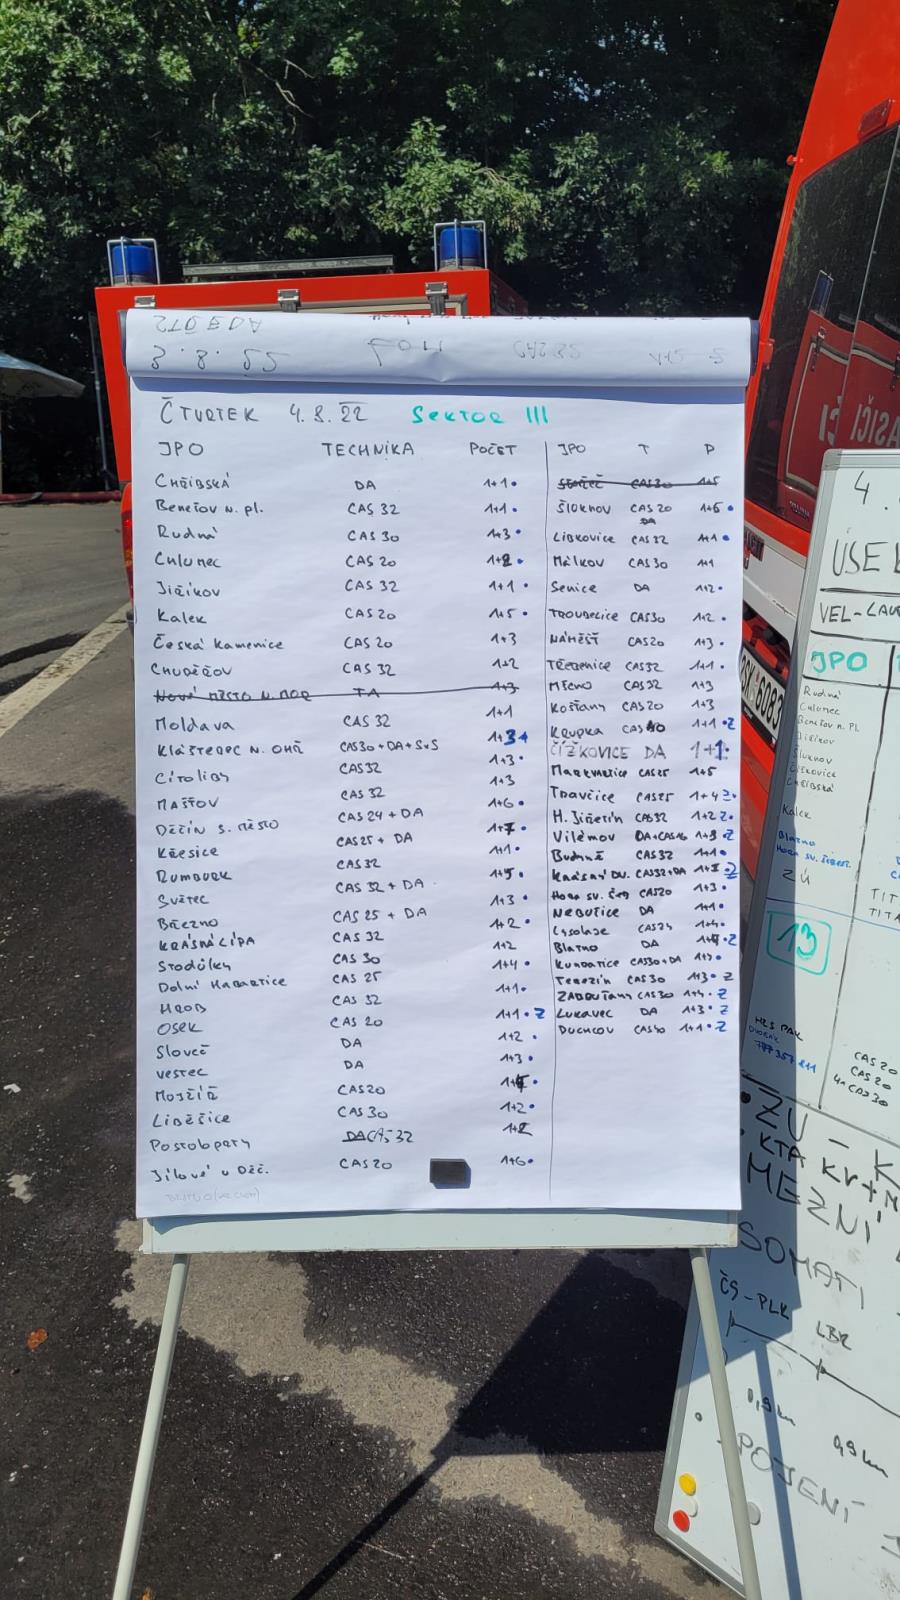 ČTVRTEK 4.8.22 SEKTOR III
JPO TECHNIKA POČET
Chřibská DA 1+1
Benešov n. pl. CAS 32 1+1
Rudná CAS 30 1+3
Culunec CAS 20 1+2
Jiříkov CAS 32 1+1
Kalek CAS 20 1+5
Česká Kamenice CAS 20 1+3
Chuděřov CAS 32 1+2
NOVÉ MĚSTO N. MOR TA 1+3
Moldava CAS 32 1+1
KLÁŠTEREC N. OHŘ CAS30+DA+SVS 1+3
Cítoliby CAS32 1+3
MAŠŤOV CAS 32 1+3
DĚČÍN S. MĚSTO CAS24 + DA 1+6
Křešice CAS25 + DA 1+7
RUMBURK CAS32 1+1
Světec CAS 32 + DA 1+5
BŘEZNO CAS 25 + DA 1+3
KRÁSNÁ LÍPA CAS 32 1+2
Stodůlky CAS 30 1+2
Dolní Habartice CAS 25 1+4
HROB CAS 32 1+1
OSEK CAS 20 1+1 Z
Sloveč DA 1+2
VESTEC DA 1+3
MOJŽÍŘ CAS20
LIBĚŠICE CAS30 1+2
Postoloprty CAS 32 1+2
Jílové u Děč. CAS20 1+6
JPO T P
CAS30 1+5
ŠLUKNOV CAS 20 DA 1+5
LIBKOVICE CAS 32 1+1
Málkov CAS 30 1+1
Senice DA 1+2
TROUBELICE CAS30 1+2
NÁMĚŠŤ CAS20 1+3
TŘEBENICE CAS32 1+1
MŠENO CAS32 1+3
KOŠŤANY CAS20 1+3
KRUPKA CAS40 1+1 Z
ČÍŽKOVICE DA 1+1
MARKVARTICE CAS25 1+5
TRAVČICE CAS25 1+4 Z
H. Jiřetín CAS32 1+2 Z
VILÉMOV 1+3 Z
BUDYNĚ CAS32 1+1
KRÁSNÝ DV. CAS32+DA Z
HORA SV. CAS20 1+3
NEBUŽICE DA 1+1
Lysolaje CAS24 1+4
BLATNO DA Z
KUNRATICE CAS30+DA
TEREZÍN CAS30 1+3 Z
ZABRUŠANY CAS30 1+4 Z
LUKAVEC DA 1+3 Z
DUCHCOV CAS40 1+1 Z
4.
ÚSE
VEL-
JPO
Rudná
Culunec
Benešov n. Pl
Jiříkov
Šluknov
Čížkovice
Chřibská
Kalek
BLATNO
HORA SV. ŠEBEST.
ZÚ
TIT
TITA
13
HZS PAK
CAS 20
CAS 20
4x CAS 30
ZÚ – K
KTA KV+
MEZNÍ
SOMATI
ČS-PLK
LBK
0,9 km
0,9 km
POJENÍ